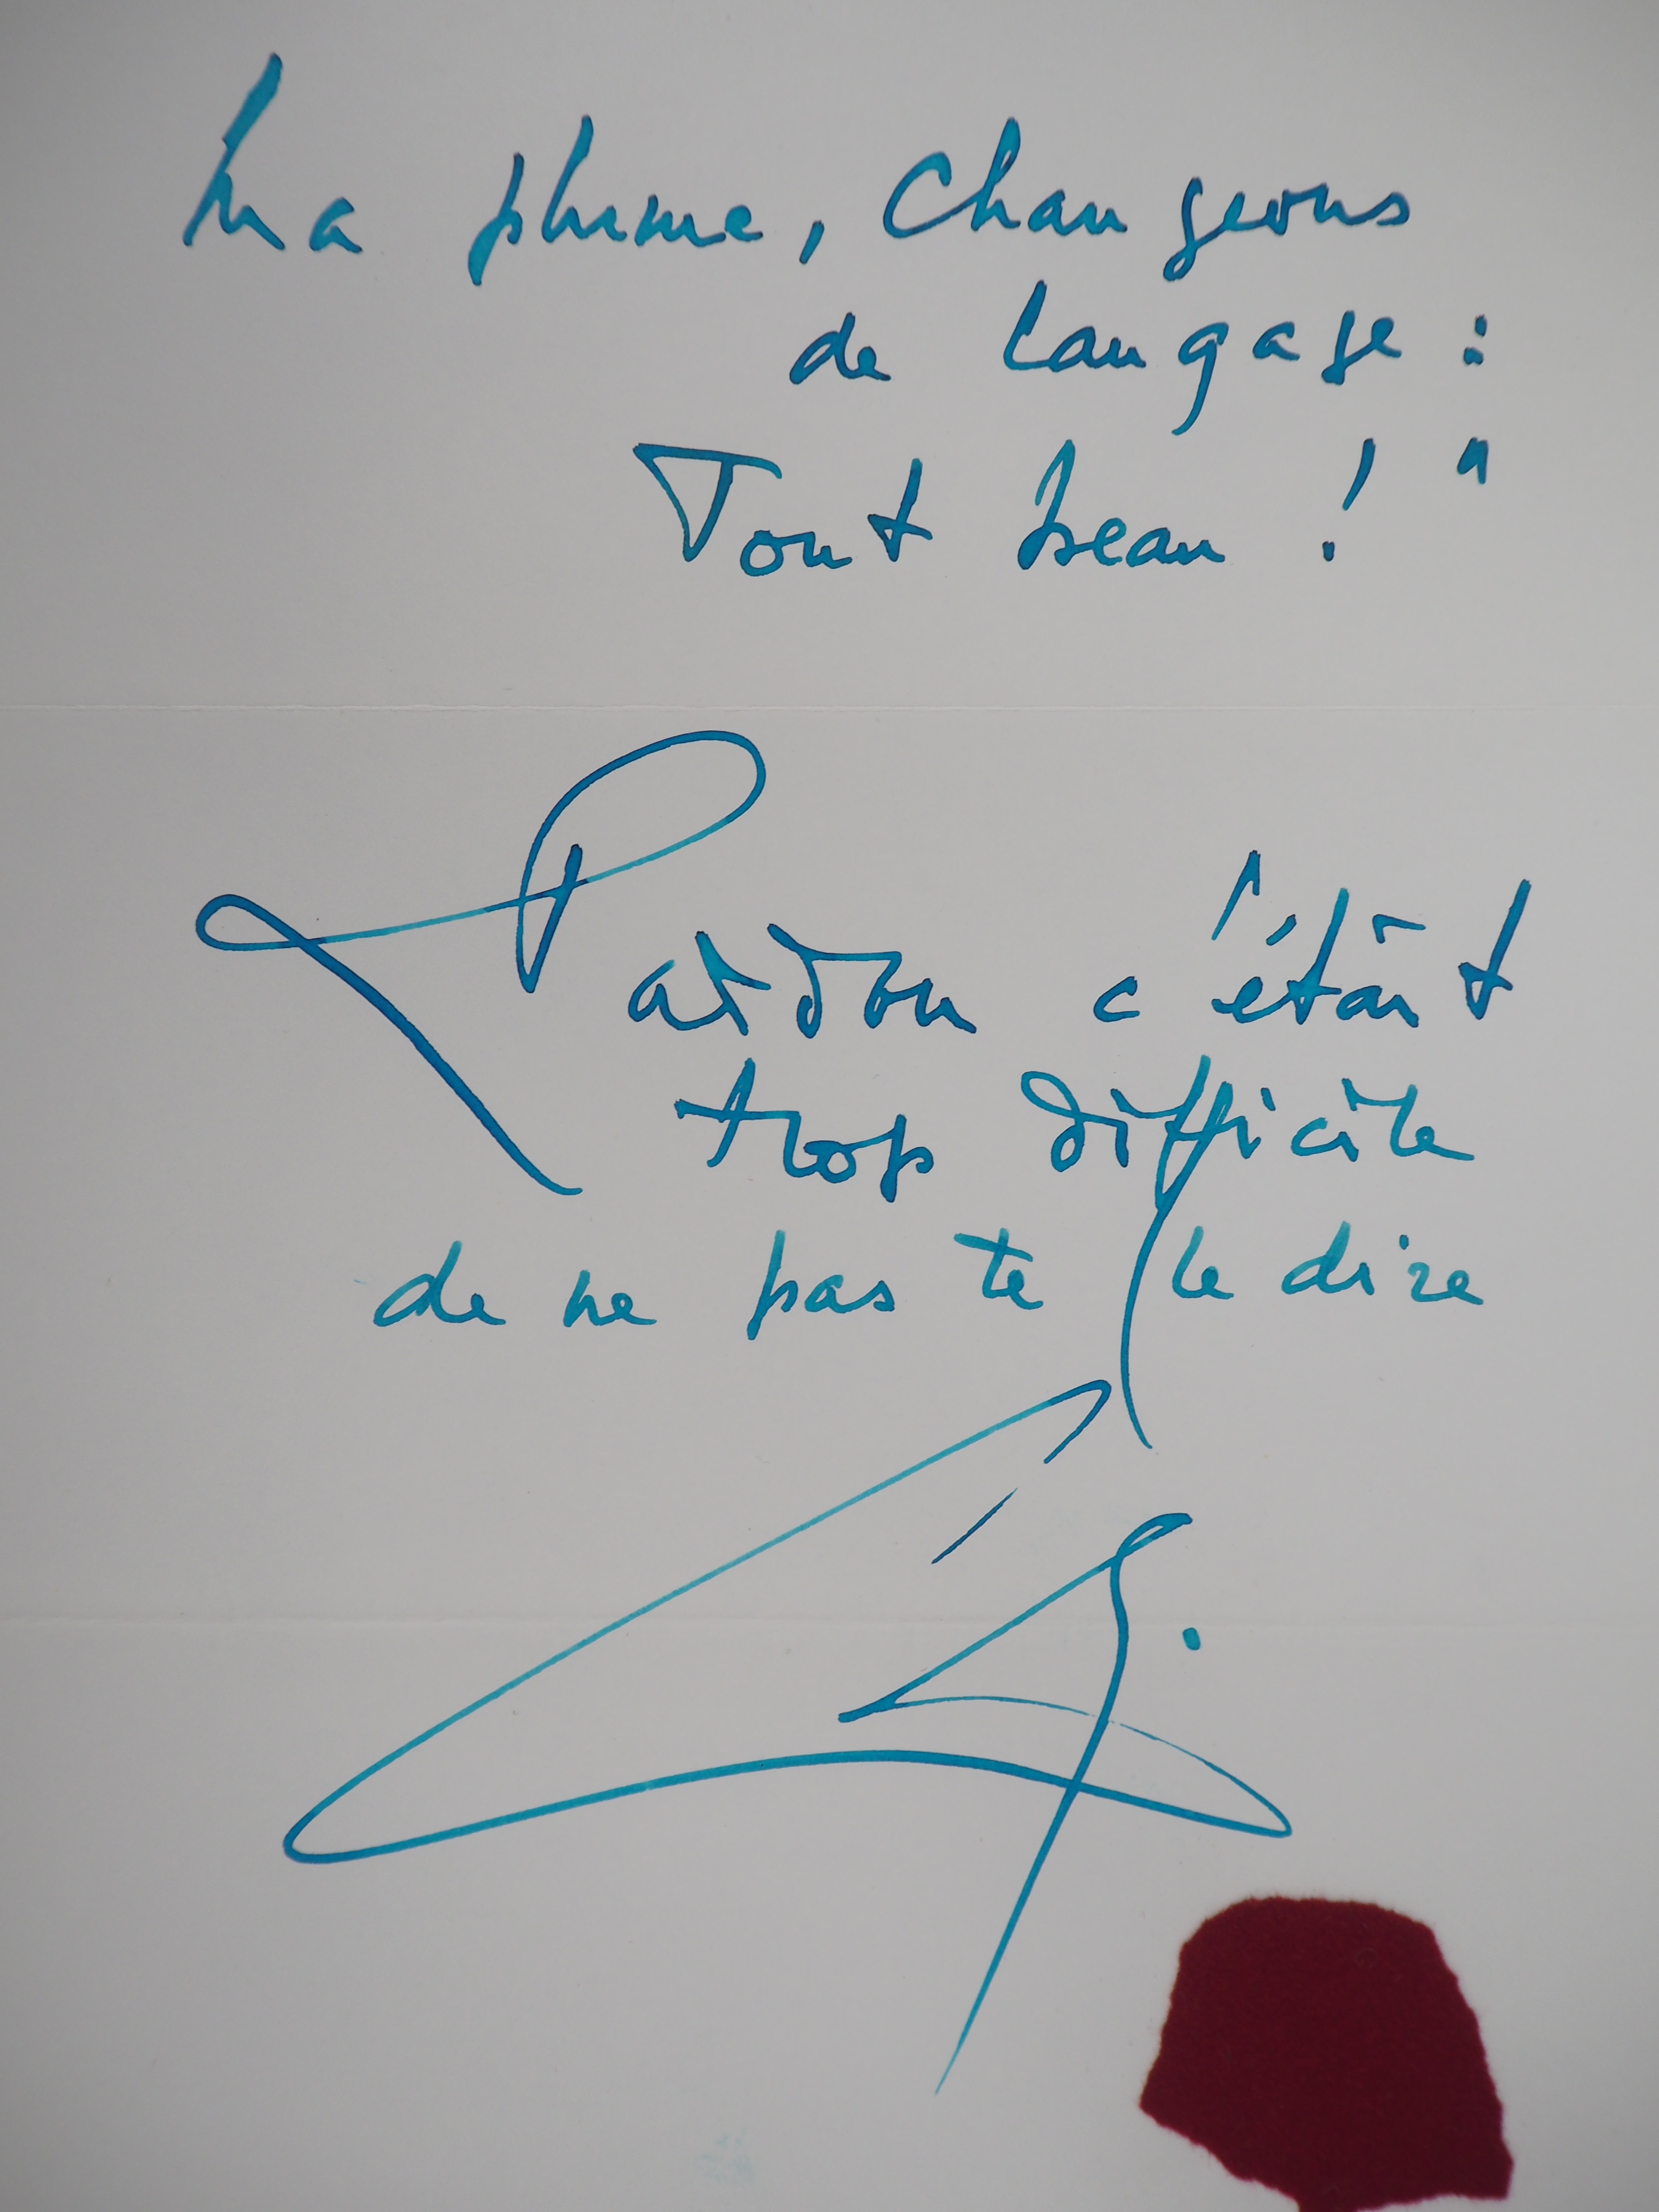 Ma plume, Changeons
de langage :
Tout beau ! "
Pardon c'était
trop difficile
de ne pas te le dire